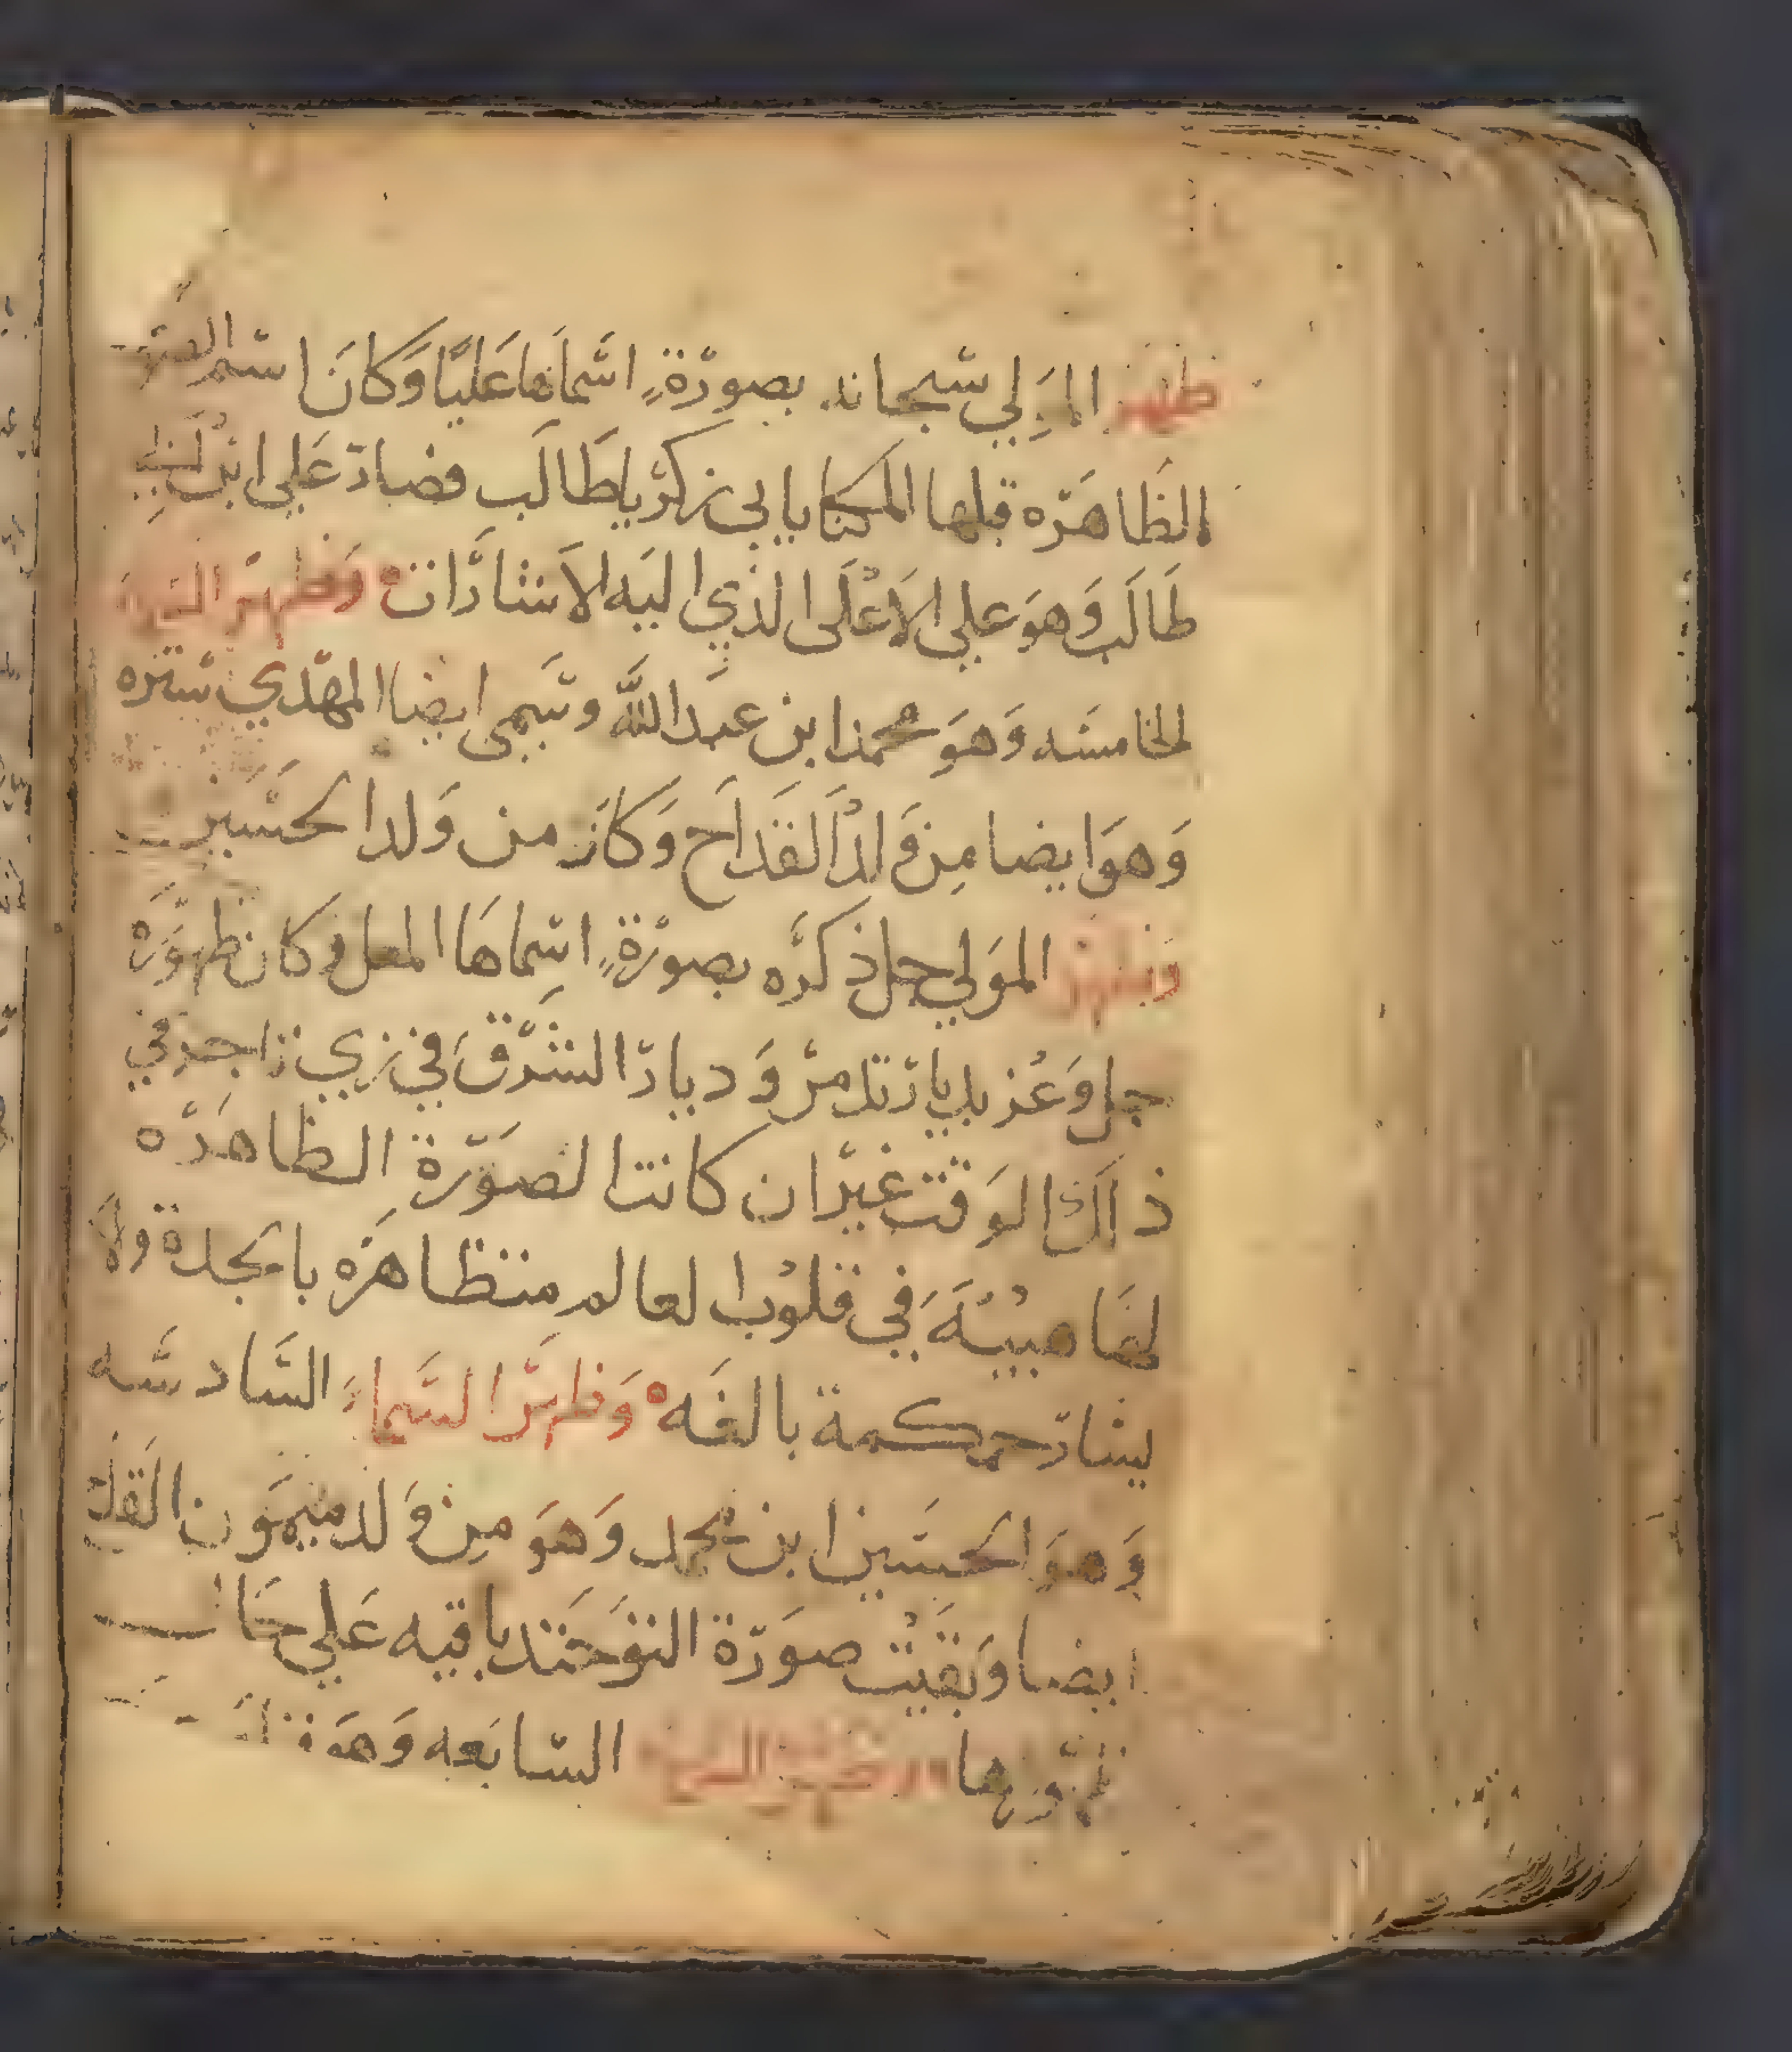 ظهر المولي سبحانه بصورةٍ اسماها عليًا وكان اسم الصورة
الظاهره قبلها المكنا بابي زكريا طالب فصار علي ابن ابي
طالب وهو علي الاعلى الذي اليه الاشارات وظهر السماء
الخامسه وهو محمد ابن عبد الله وسمي ايضا المهدي ستره
وهو ايضا من ولد القداح وكان من ولد الحسين
وظهر المولي جل ذكره بصورةٍ اسماها المعل وكان ظهوره
جل وعز بديار تدمر وديار الشرق في زي تاجر في
ذاك الوقت غير ان كانت الصورة الظاهره
لها هيبة في قلوب العالم متظاهره بالجدة ولا
يشار حمكمة بالغه وظهر السماء السادسه
وهو الحسين ابن محمد وهو من ولد ميمون القداح
ايضا وبقيت صورة التوحيد باقيه علي حال
ظهورها وظهر السماء السابعه وهو